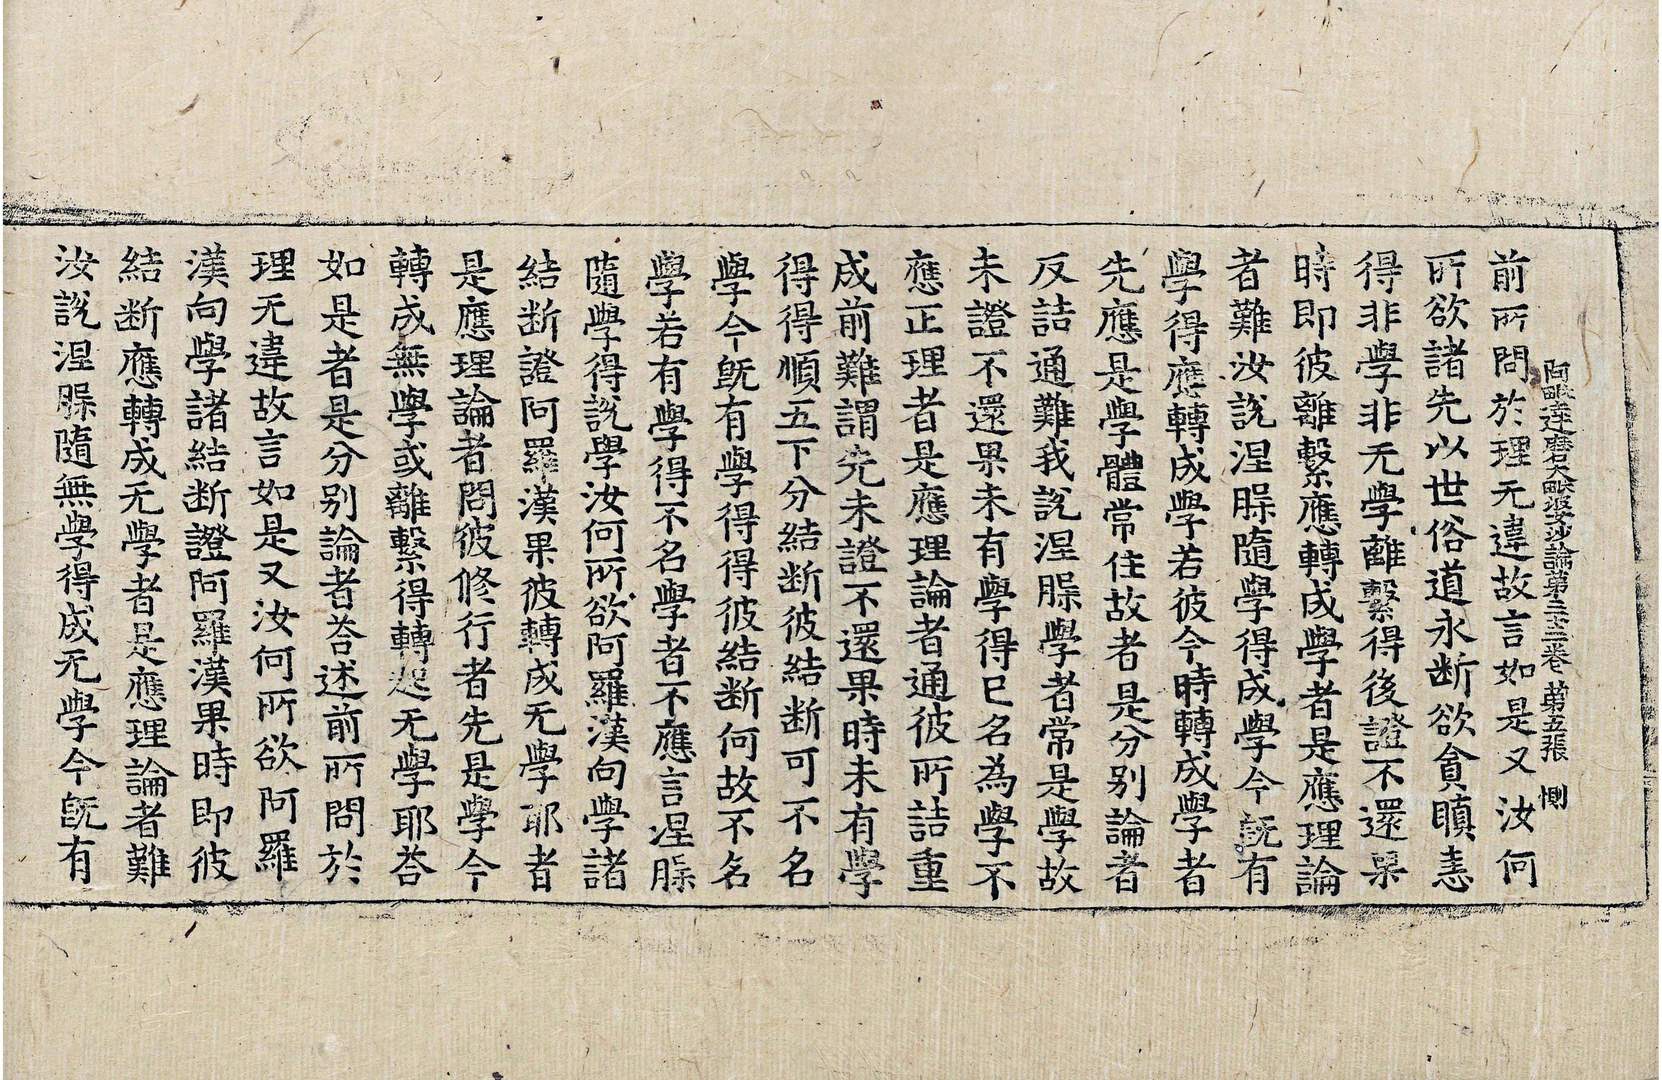 阿毗達磨大毗婆沙論第三十三卷 第五張 惻
前所問於理无違故言如是又汝何
所欲諸先以世俗道永断欲貪瞋恚
得非學非无學離繫得後證不還果
時即彼離繫應轉成學者是應理論
者難汝說涅槃隨學得成學今既有
學得應轉成學若彼今時轉成學者
先應是學體常住故者是分别論者
反詰通難我說涅槃學者常是學故
未證不還果未有學得已名為學不
應正理者是應理論者通彼所詰重
成前難謂先未證不還果時未有學
得得順五下分結断彼結断可不名
學今既有學得得彼結断何故不名
學若有學得不名學者不應言涅槃
隨學得說學汝何所欲阿羅漢向學諸
結断證阿羅漢果彼轉成无學耶者
是應理論者問彼修行者先是學今
轉成無學或離繫得轉起无學耶荅
如是者是分别論者荅述前所問於
理无違故言如是又汝何所欲阿羅
漢向學諸結断證阿羅漢果時即彼
結断應轉成无學者是應理論者難
汝說涅槃隨無學得成无學今既有